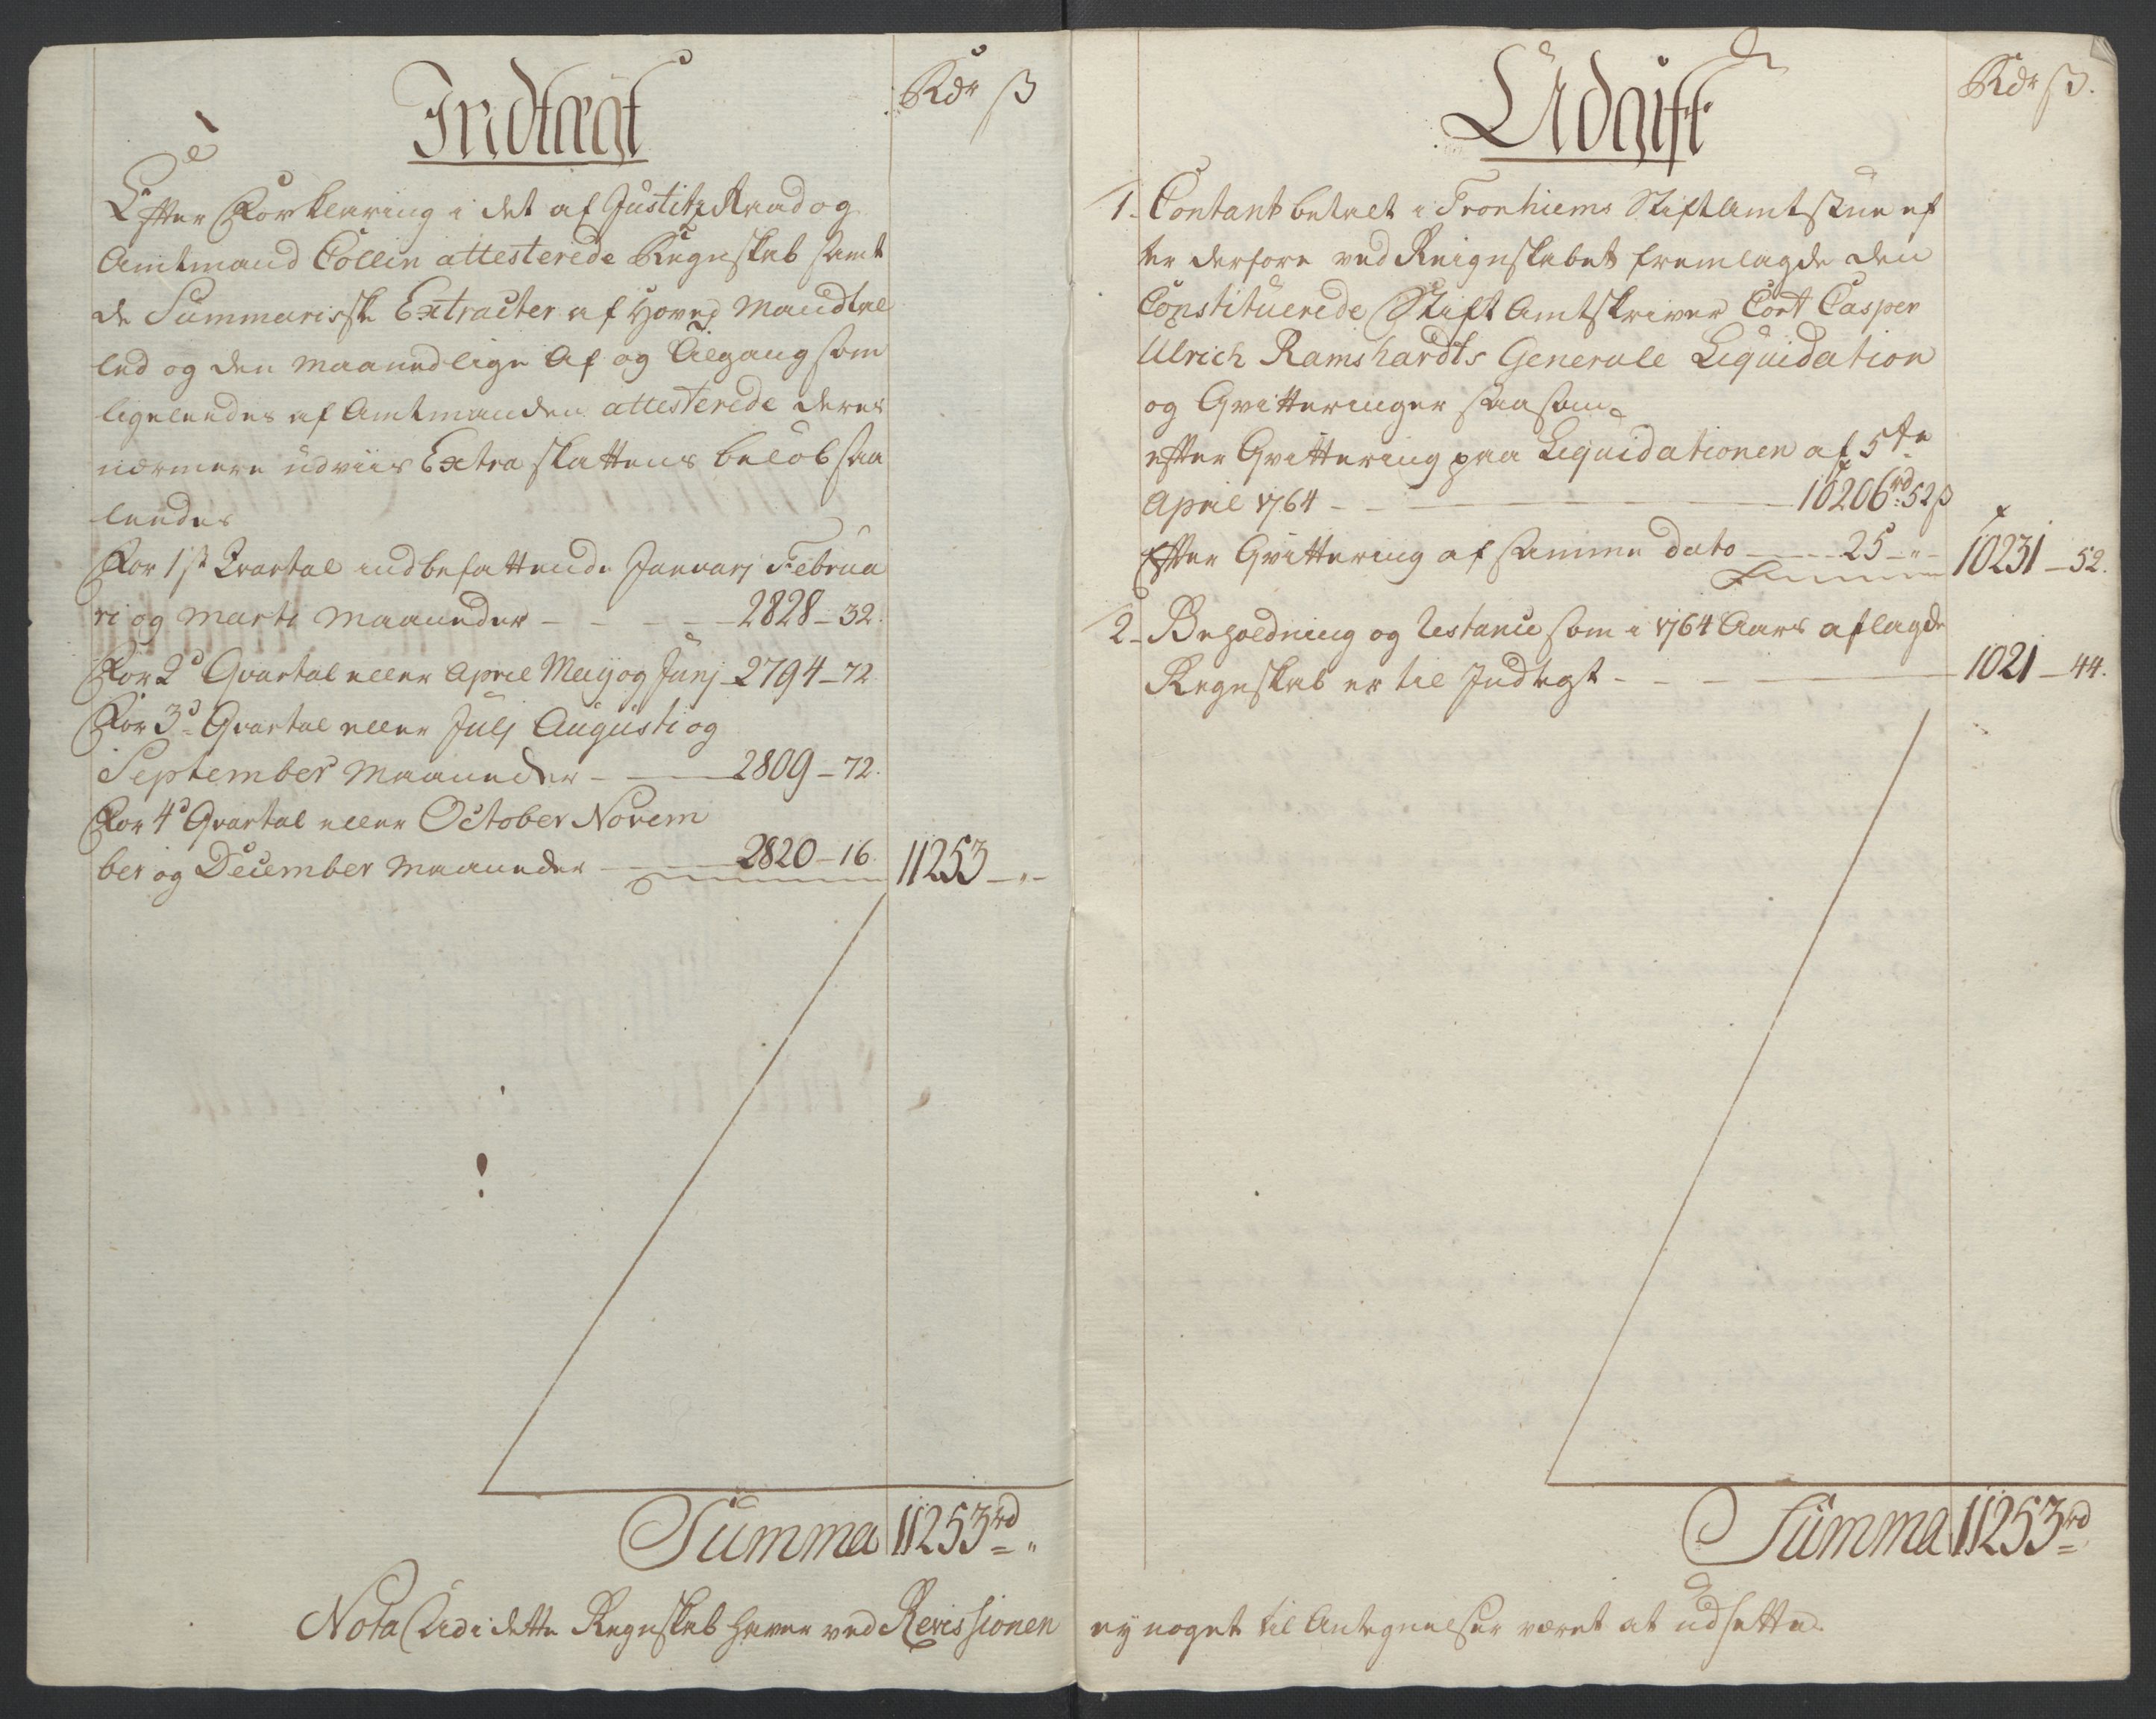 Indtægt
Rdr ß
Efter Forklaring i det af Justitz Raad og
Amtmand Collin attesterede Regnskab samt
de Summariske Extracter af Hoved Mandtal
led og den maanedlige Af og Tilgang som
ligeleedes af Amtmanden attesterede deres
nærmere udviis Extra skattens beløb saa
leedes
For 1ste Qvartal indbefattende Januarj Februa
ri og Marti Maaneder - - - 2828 - 32.
For 2d Qvartal eller April Maij og Junj - 2794 - 72.
For 3d Qvartal eller Julj Augusti og
September Maaneder - 2809 - 72.
For 4d Qvartal eller October Novem
ber og December Maaneder - 2820 - 16. 11253 - " -
Summa 11253 rd "
Nota Udi dette Regnskab haver ved Revissionen
Udgift
Rdr ß.
1. Contant betalt i Tronhiems Stiftamtstue ef
ter derfore ved Reignskabet fremlagde den
Constituerede Stift Amtskriver Cort Casper
Ulrich Ramshardts Generale Liquidation
og Qvitteringer saasom
efter Qvittering paa Liquidationen af 5te
April 1764 - - - 10206 rd 52 ß
Efter Qvittering af samme dato - 25 - " - 10231 - 52.
2. Beholdning og Restance som i 1764 Aars aflagde
Regnskab er til Indtegt - - - 1021 - 44.
Summa 11253 rd
ey noget til Antegnelser været at udsette.